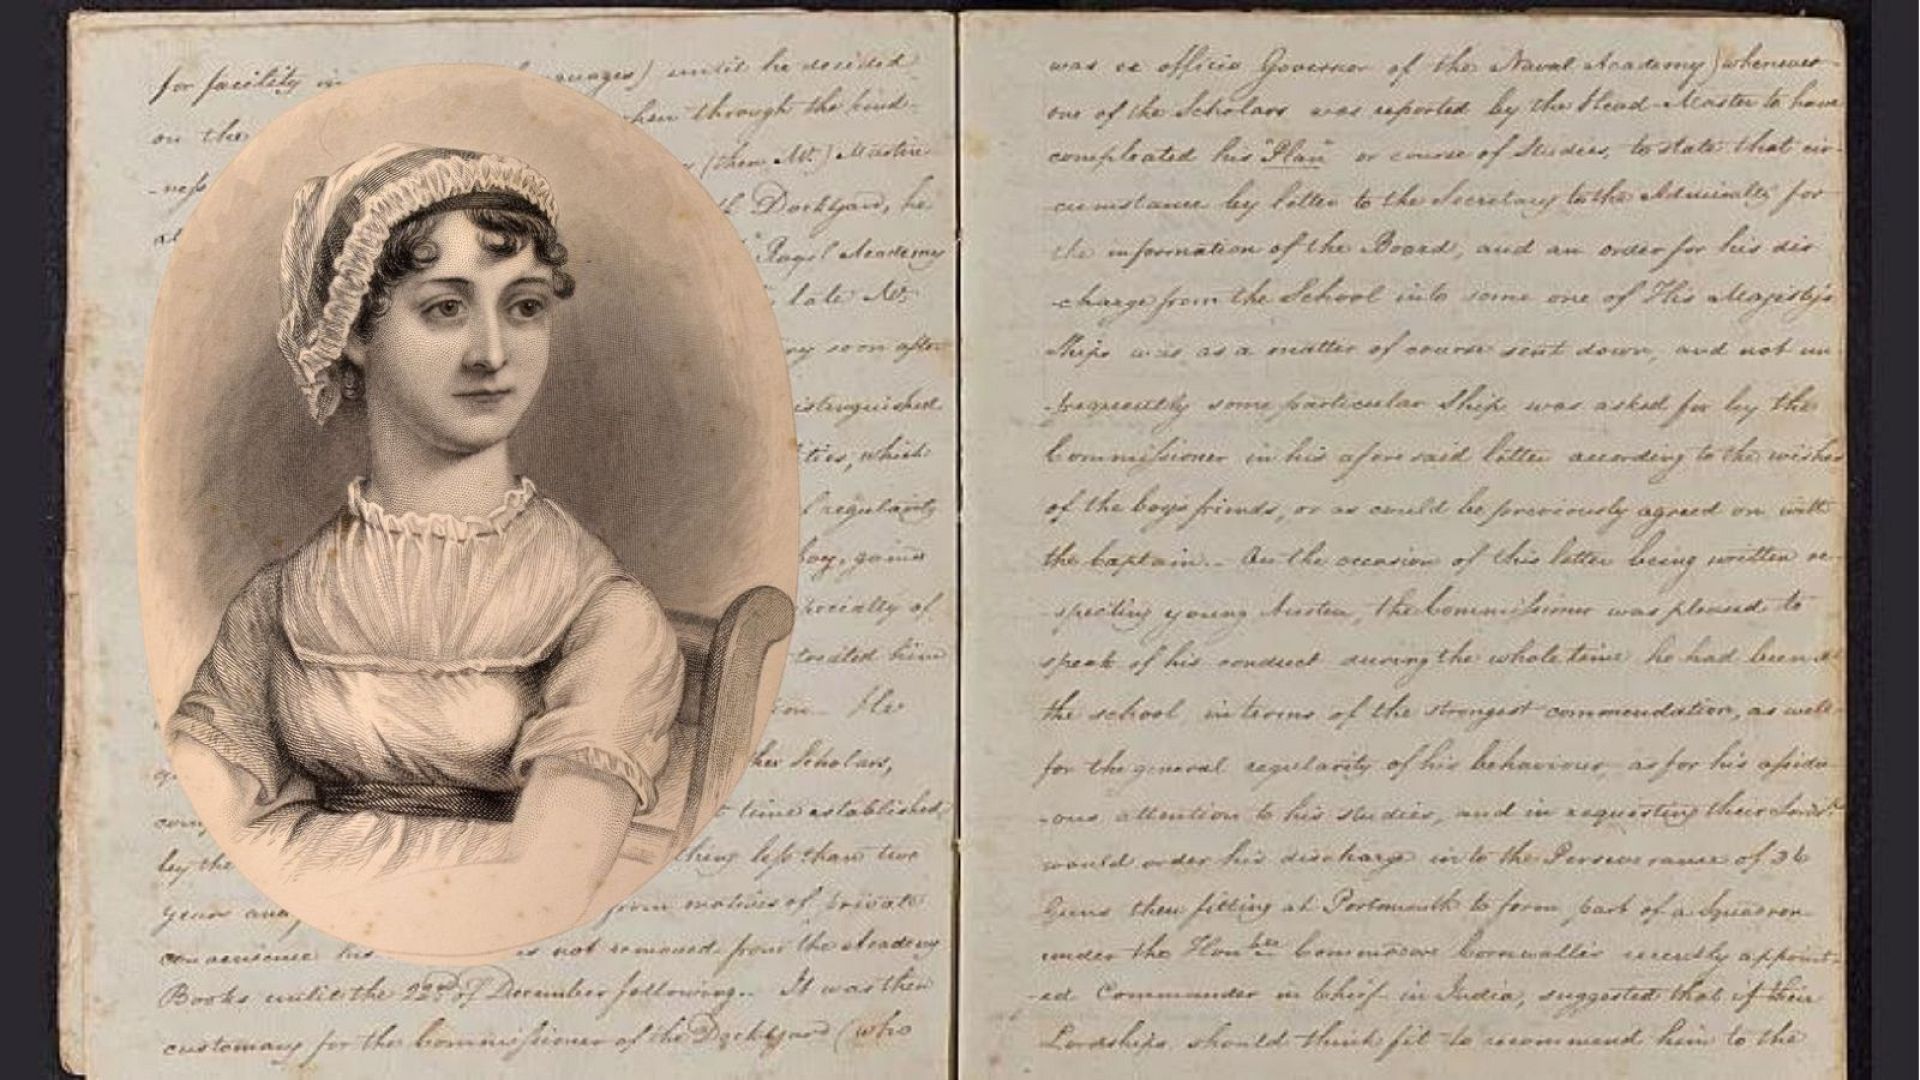 for facility in languages) until he decided
on the when through the kind-
-ness (then Mr.) Martin
Dockyard, he
Royal Academy
late Mr.
very soon after
distinguished
ties, which
regularity
boy, gained
specially of
treated him
He
Scholars,
time established
by the thing less than two
years and from motives of private
convenience his not removed from the Academy
Books until the 22nd of December following. It was then
customary for the Commissioner of the Dockyard (who
was ex officio Governor of the Naval Academy) whenever
one of the Scholars was reported by the Head-Master to have
compleated his "Plan" or course of Studies, to state that cir-
-cumstance by letter to the Secretary to the Admiralty for
the information of the Board, and an order for his dis
-charge from the School into some one of His Majesty's
Ships was as a matter of course sent down, and not un
-frequently some particular Ship was asked for by the
Commissioner in his aforesaid letter according to the wishes
of the boys friends, or as could be previously agreed on with
the Captain.- On the occasion of this letter being written re-
-specting young Austen, the Commissioner was pleased to
speak of his conduct during the whole time he had been at
the school in terms of the strongest commendation, as well
for the general regularity of his behaviour, as for his assidu
-ous attention to his studies, and in requesting their Lords.ps
would order his discharge into the Perseverance of 36
Guns then fitting at Portsmouth to form part of a Squadron
under the Honble Commodore Cornwallis recently appoint-
-ed Commander in Chief in India, suggested that if their
Lordships should think fit to recommend him to the